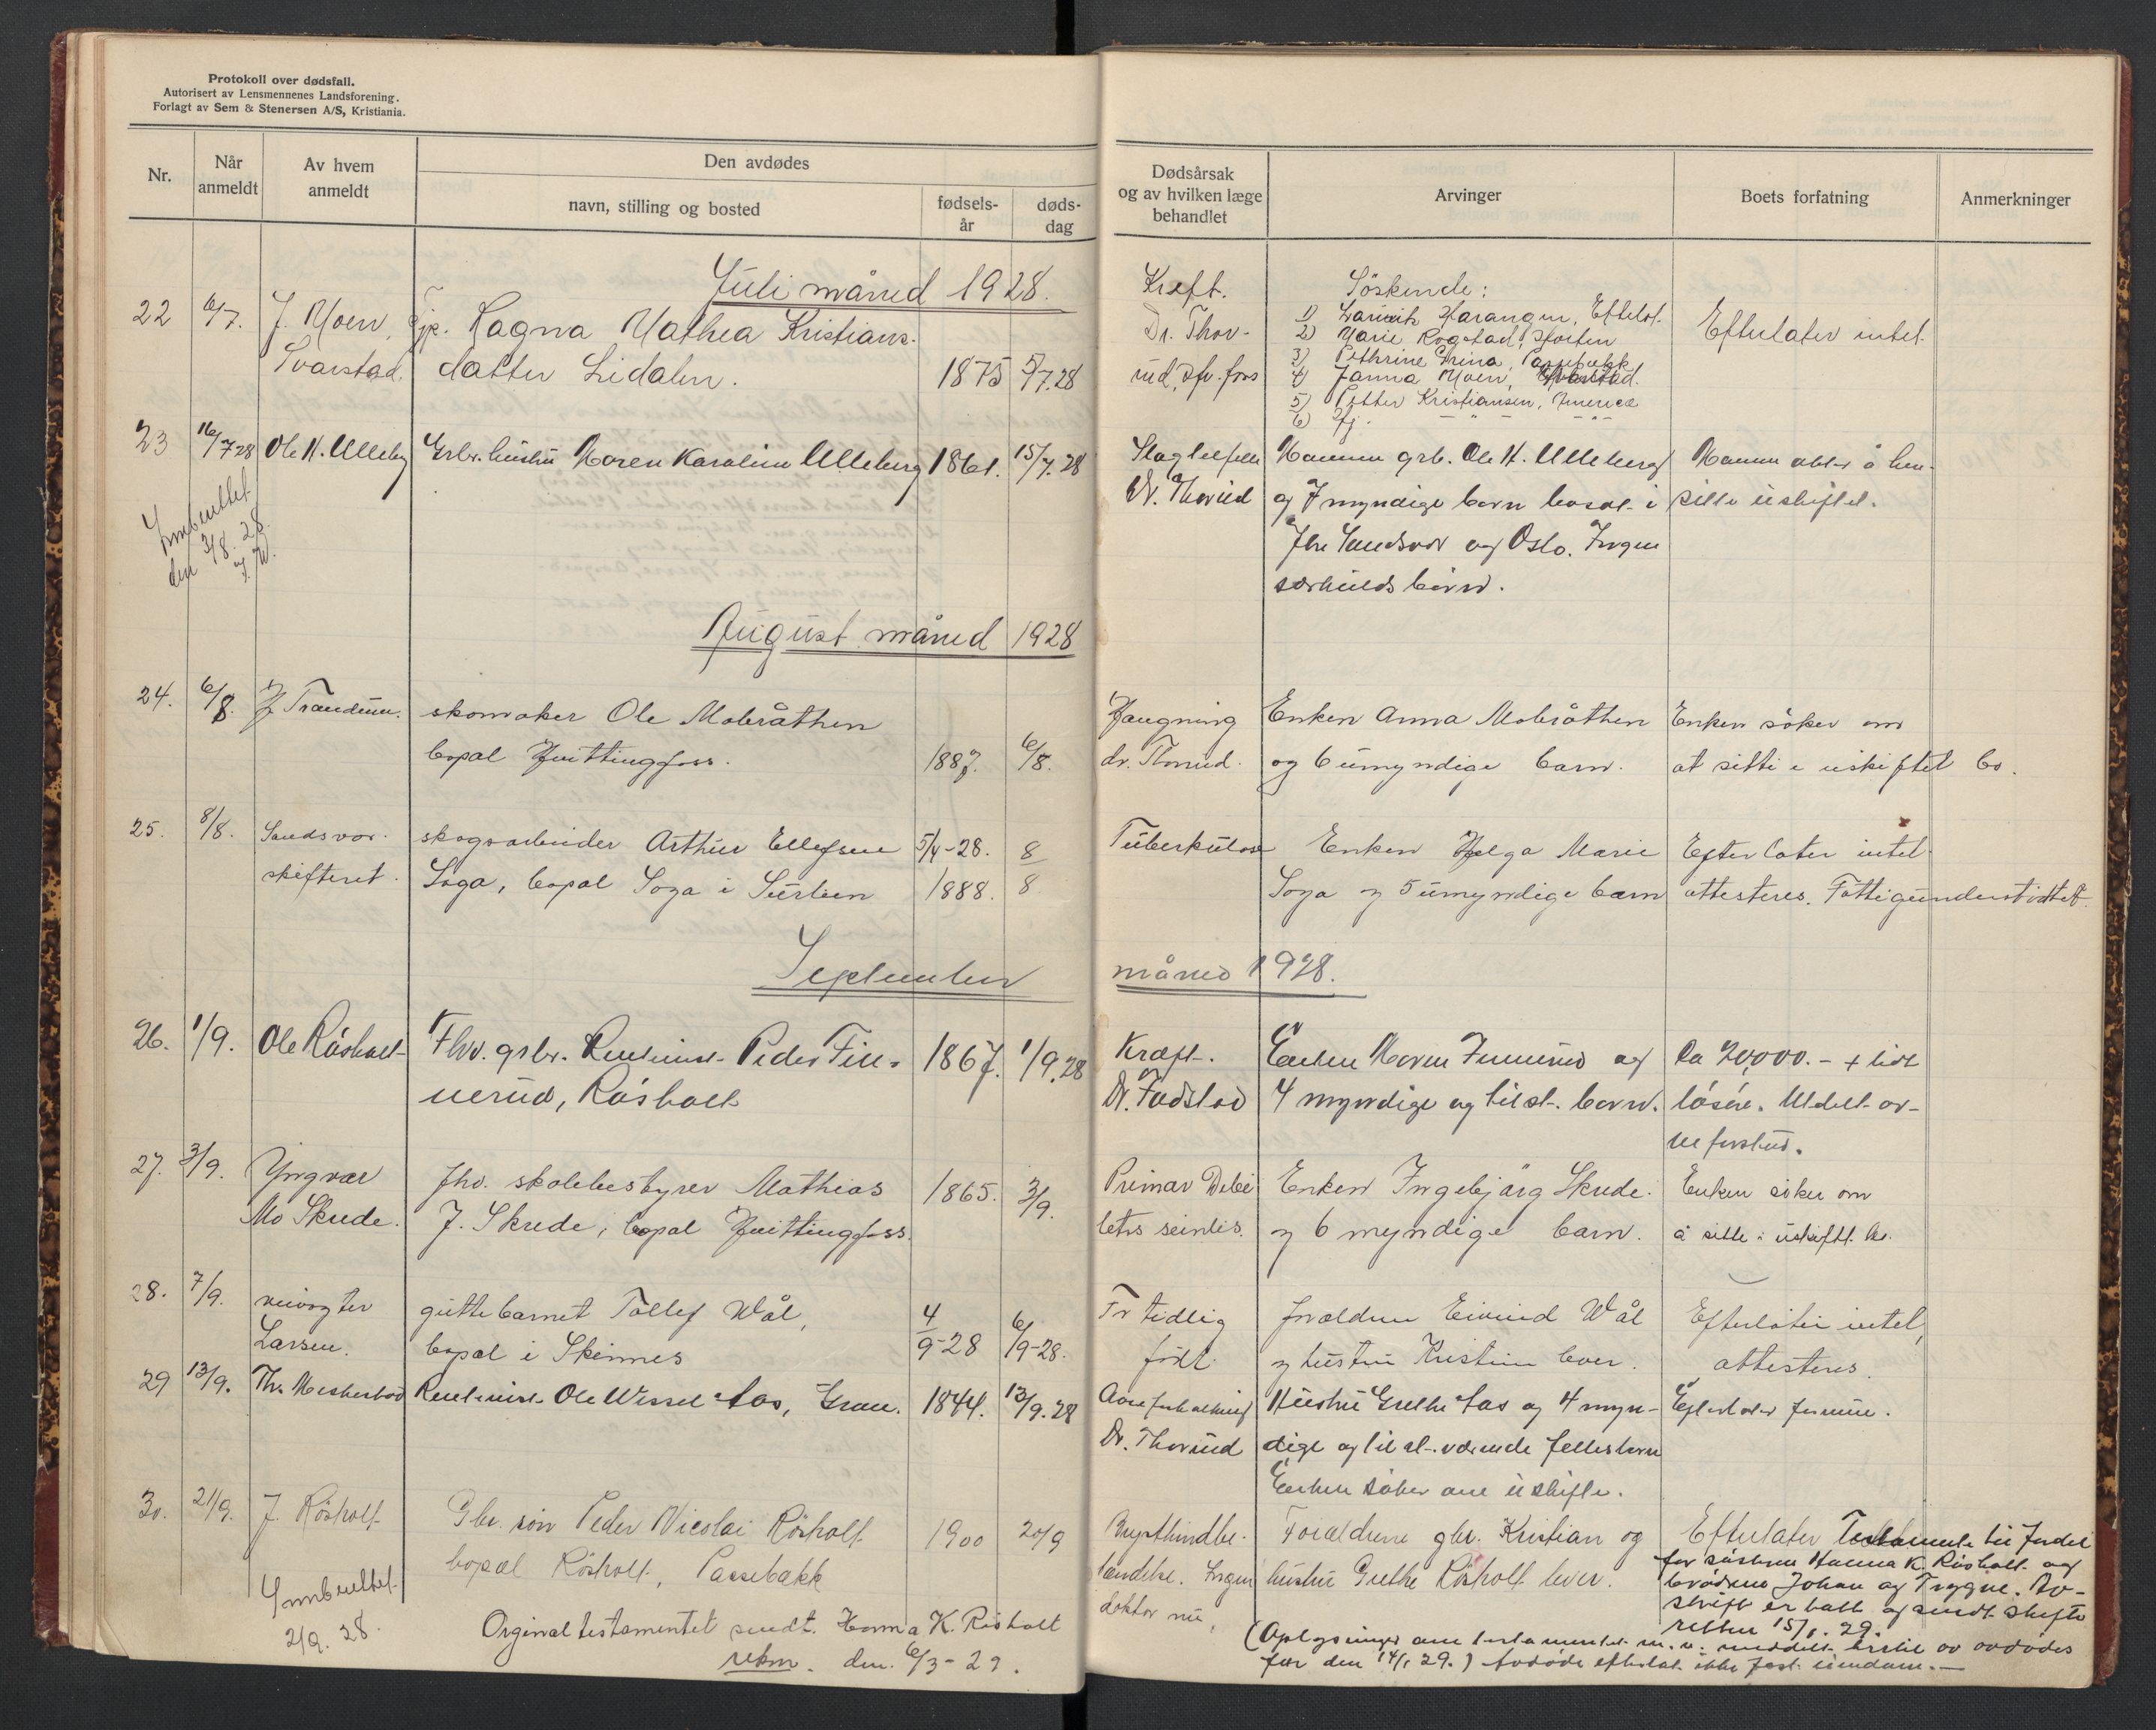 Protokoll over dødsfall.
Autorisert av Lensmennenes Landsforening.
Forlagt av Sem & Stenersen A/S, Kristiania.
Nr.
Når anmeldt
Av hvem anmeldt
Den avdødes
navn, stilling og bosted
fødsels-år
døds-dag
Dødsårsak og av hvilken læge behandlet
Arvinger
Boets forfatning
Anmerkninger
Juli måned 1928.
22 6/7. J. Moen, Svarstad.
Tjp. Ragna Mathea Kristians-
datter Lidalen. 1875 5/7.28
Kreft.
Dr. Thor-
rud, Hv. foss
Söskende:
1) Larvik Harangen, Eftelöt.
2) Marie Rogstad, Horten
3) Pethrine Grina, Passebekk
4) Janna Moen, Svarstad.
5) Petter Kristiansen, Amerika
6) Hj. - " - - " -
Efterlater intet.
23 16/7 28 Ole H. Ulleberg
Grbr. hustru Maren Karoline Ulleberg 1861. 15/7.28
Slagtilfelle
Dr. Thorud
Mannen grb. Ole H. Ulleberg
og 7 myndige barn bosat i
Ytre Sandsvær og Oslo. Ingen
særkulds barn.
Mannen akter å hen-
sitte i uskiftet.
Innberettet
den 3/8. 28.
August måned 1928
24. 6/8. J. Trandum.
skomaker Ole Mobråthen
bopæl Hvittingfoss. 1887. 6/8.
Hengning
dr. Thorud.
Enken Anna Mobråthen
og 6 umyndige barn.
Enken söker om
at sitte i uskiftet bo.
25. 8/8. Sandsvær skifteret.
skogsarbeider Arthur Ellefsen
Soga, bopæl Soga i
5/4-28. 1888. 8/8
Tuberkulose
Enken Helga Marie
Soga og 5 umyndige barn
Efterlater intet
attesteres. Fattigunderstöttet.
September måned 1928.
26. 1/9. Ole Råsholt
Fhv. grbr. Rentenist Peder Fin-
nerud, Råsholt 1867. 1/9.28
Kræft.
Dr. Fodstad
Enken Maren Finnerud og
4 myndige og tilst. barn.
Ca 20,000.- + litt
lösöre. Utdelt ar-
veforskud.
27. 3/9. Yngvar Mo Skrede.
Fhv. skolebestyrer Mathias
J. Skrede, bopæl Hvittingfoss. 1865. 3/9.
Primær
Enken Ingebjörg Skrede
og 6 myndige barn.
Enken söker om
å sitte i uskiftet bo.
28. 7/9. veivogter Larsen.
guttebarnet Tollef Wål,
bopæl i Skinnes 4/9-28 6/9-28.
For tidlig
födt.
foreldrene Eivind Wål
og hustru Kristine lever.
Efterlater intet,
attesteres.
29 13/9. Th. Mesterbö
Rentenist Ole Wessel Aas, Gran. 1844. 13/9.28
Åreforkalkning
Dr. Thorud
Hustru Grethe Aas og 4 myn-
dige og tilst. værende fellesbarn
Enken söker om uskifte.
Efterlater formue.
30. 21/9. J. Rösholt
Gbr. sön Peder Nicolai Rösholt
bopæl Rösholt, Passebekk 1900 20/9
Brysthindebe-
tændelse. Ingen
doktor nu.
Foreldrene gbr. Kristian og
hustru Grethe Rösholt lever.
Efterlater Testamente til fordel
for söstren Hanna K. Rösholt og
brödrene Johan og Trygve. Av-
skrift er tatt og sendt skifte
retten 15/1. 29.
(Oplysninger om testamentet m. v. meddelt av avdödes
far den 14/1 29.) Avdöde efterlot ikke fast eiendom. —
Innberettet
2/9. 28.
Orginal testamentet sendt. Hanna K. Rösholt
rekm. den. 6/3-29.